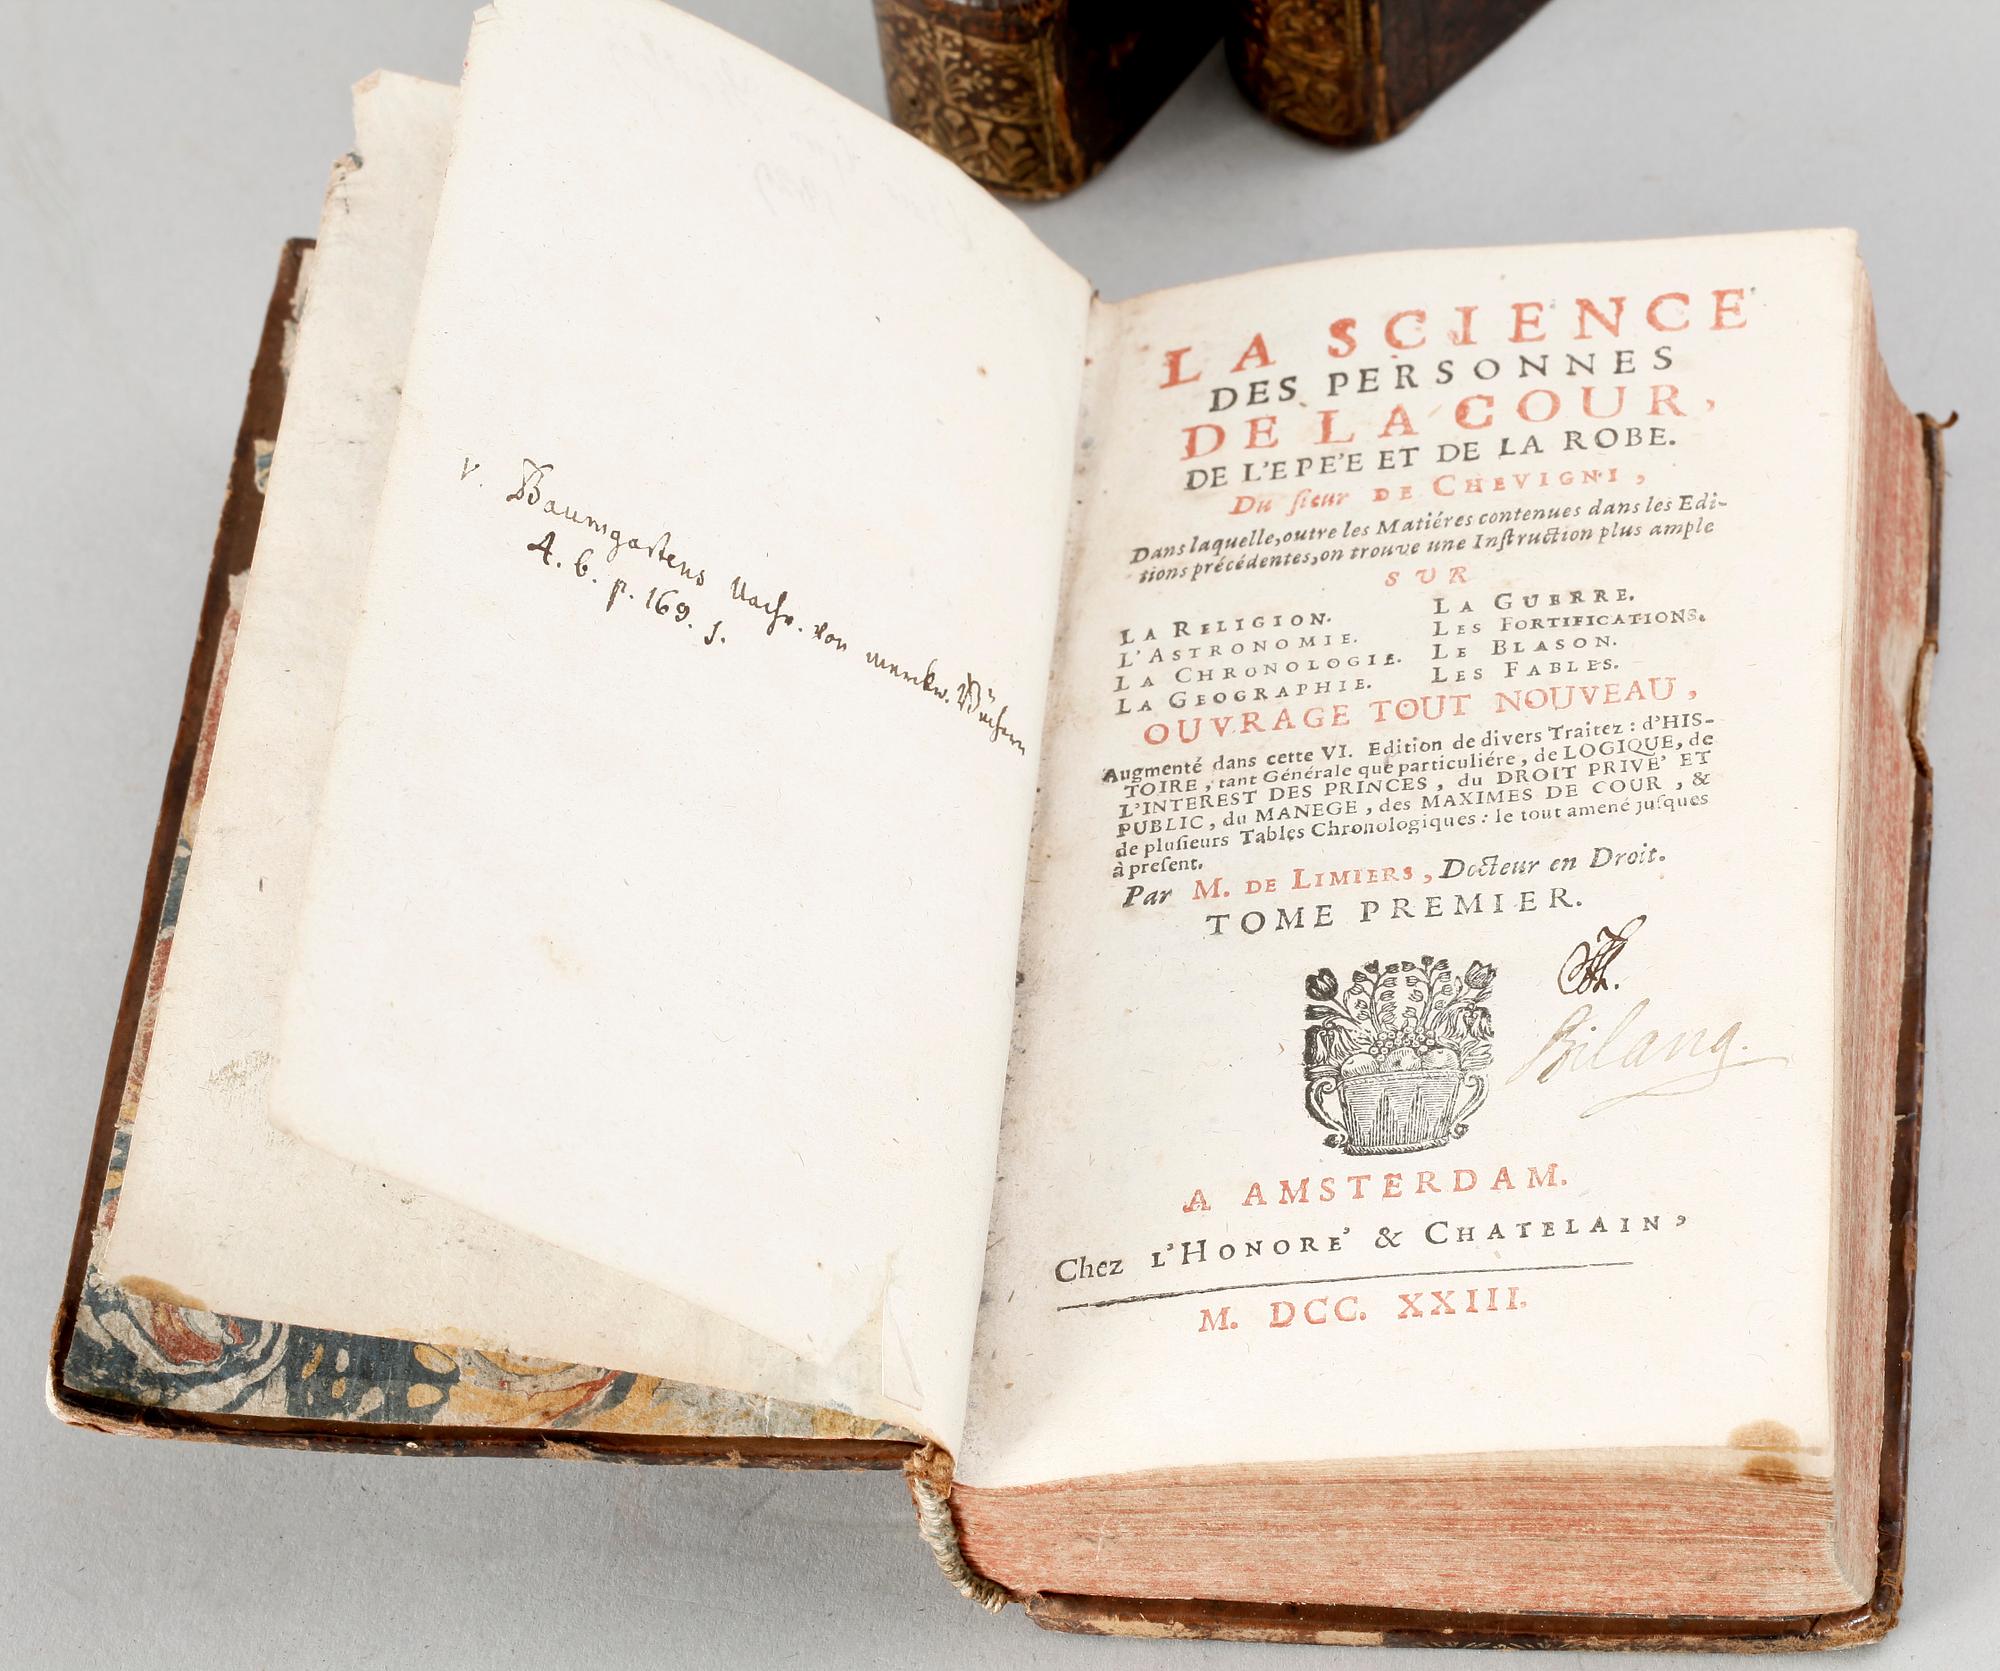 v. Baumgartens Nachr. von merckw. Büchern
4. b. p. 169. s.
LA SCIENCE
DES PERSONNES
DE LA COUR,
DE L'EPE'E ET DE LA ROBE.
Du ſieur DE CHEVIGNI,
Dans laquelle, outre les Matiéres contenues dans les Edi-
tions précédentes, on trouve une Inſtruction plus ample
SUR
LA RELIGION.
L'ASTRONOMIE.
LA CHRONOLOGIE.
LA GEOGRAPHIE.
LA GUERRE.
LES FORTIFICATIONS.
LE BLASON.
LES FABLES.
OUVRAGE TOUT NOUVEAU,
Augmenté dans cette VI. Edition de divers Traitez: d'HIS-
TOIRE, tant Générale que particuliére, de LOGIQUE, de
L'INTEREST DES PRINCES, du DROIT PRIVE' ET
PUBLIC, du MANEGE, des MAXIMES DE COUR, &
de pluſieurs Tables Chronologiques: le tout amené juſques
à preſent.
Par M. DE LIMIERS, Docteur en Droit.
TOME PREMIER.
Bilang.
A AMSTERDAM.
Chez L'HONORE' & CHATELAIN,
M. DCC. XXIII.